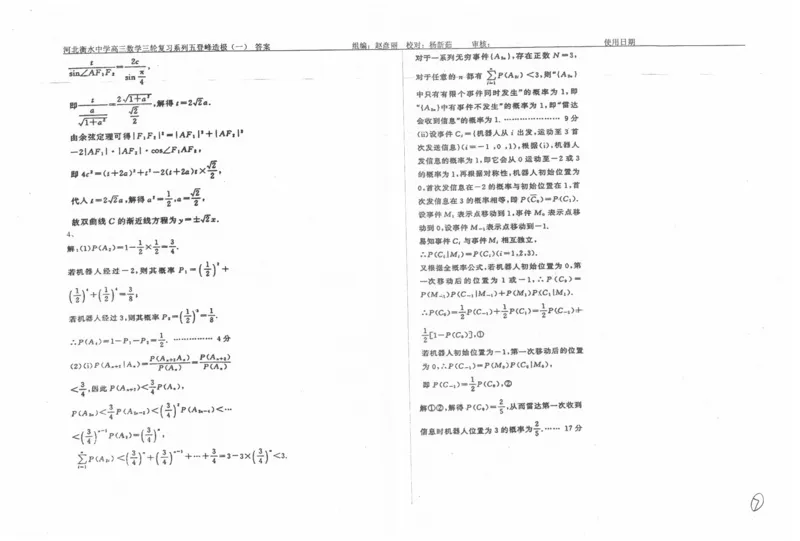 河北衡水中学高三数学三轮复习系列五登峰造极(一) 答案 组编:赵彦丽 校对:杨新茹 审核: 使用日期
t/sin∠AF₁F₂=2c/sin(π/4),
即 t/(a/√(1+a²))=2√(1+a²)/(√2/2),解得 t=2√2a.
由余弦定理可得|F₁F₂|²=|AF₁|²+|AF₂|²
-2|AF₁|·|AF₂|·cos∠F₁AF₂,
即 4c²=(t+2a)²+t²-2(t+2a)t×√2/2,
代入 t=2√2a,解得 a²=1/2,a=√2/2,
故双曲线 C 的渐近线方程为 y=±√2x.
4.
解:(1)P(A₂)=1-1/2×1/2=3/4.
若机器人经过-2,则其概率 P₁=(1/2)²+
(1/2)⁴+(1/2)⁴=3/8;
若机器人经过 3,则其概率 P₂=(1/2)³=1/8.
∴P(A₄)=1-P₁-P₂=1/2. …………… 4分
(2)(i)P(Aₙ₊₂|Aₙ)=P(Aₙ₊₂Aₙ)/P(Aₙ)=P(Aₙ₊₂)/P(Aₙ)
<3/4,因此 P(Aₙ₊₂)<3/4P(Aₙ),
P(A₂ₙ)<3/4P(A₂ₙ₋₂)<(3/4)²P(A₂ₙ₋₄)<…
<(3/4)ⁿ⁻¹P(A₂)=(3/4)ⁿ,
∑ᵢ₌₁ⁿP(A₂ᵢ)<(3/4)ⁿ+(3/4)ⁿ⁻¹+…+3/4=3-3×(3/4)ⁿ<3.
对于一系列无穷事件{A₂ₙ},存在正数 N=3,
对于任意的 n 都有 ∑ᵢ₌₁ⁿP(A₂ᵢ)<3,则"{A₂ₙ}
中只有有限个事件同时发生"的概率为 1,即
"{A₂ₙ}中有事件不发生"的概率为 1,即"雷达
会收到信息"的概率为 1. ………………… 9分
(ii)设事件 Cᵢ={机器人从 i 出发,运动至 3 首
次发送信息}(i=-1,0,1),根据(i),机器人
发信息的概率为 1,即它会从 0 运动至-2 或 3
的概率为 1,再根据对称性,机器人初始位置为
0,首次发信息在-2 的概率与初始位置在 1,首
次发信息在 3 的概率相等,即 P(C̄₀)=P(C₁).
设事件 M₁ 表示点移动到 1,事件 M₀ 表示点移
动到 0,设事件 M₋₁表示点移动到-1.
易知事件 Cᵢ 与事件 Mᵢ 相互独立,
∴P(Cᵢ|Mᵢ)=P(Cᵢ)(i=1,2,3).
又根据全概率公式,若机器人初始位置为 0,第
一次移动后的位置为 1 或-1,∴P(C₀)=
P(M₋₁)P(C₋₁|M₋₁)+P(M₁)P(C₁|M₁).
∴P(C₀)=1/2P(C₋₁)+1/2P(C₁)=1/2P(C₋₁)+
1/2[1-P(C₀)],①
若机器人初始位置为-1,第一次移动后的位置
为 0,∴P(C₋₁)=P(M₀)P(C₀|M₀),
即 P(C₋₁)=1/2P(C₀),②
解①②,解得 P(C₀)=2/5,从而雷达第一次收到
信息时机器人位置为 3 的概率为2/5. …… 17分
⑦